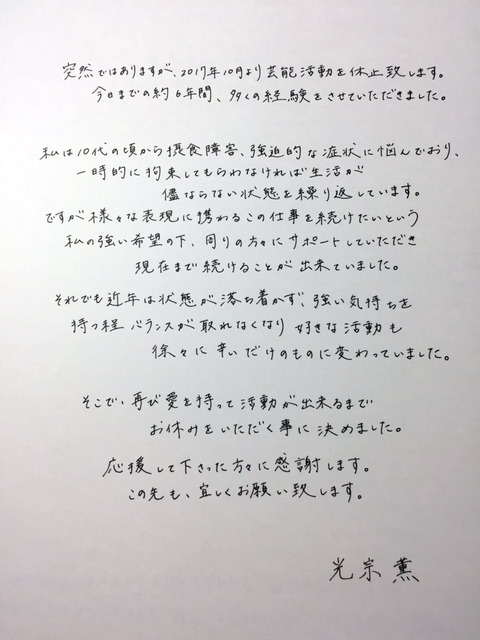 突然ではありますが、2017年10月より芸能活動を休止致します。
今日までの約6年間、多くの経験をさせていただきました。
私は10代の頃から摂食障害、強迫的な症状に悩んでおり、
一時的に拘束してもらわなければ生活が
儘ならない状態を繰り返しています。
ですが様々な表現に携わるこの仕事を続けたいという
私の強い希望の下、周りの方々にサポートしていただき
現在まで続けることが出来ていました。
それでも近年は状態が落ち着かず、強い気持ちを
持つ程バランスが取れなくなり好きな活動も
徐々に辛いだけのものに変わっていました。
そこで、再び愛を持って活動が出来るまで
お休みをいただく事に決めました。
応援して下さった方々に感謝します。
この先も、宜しくお願い致します。
光宗薫